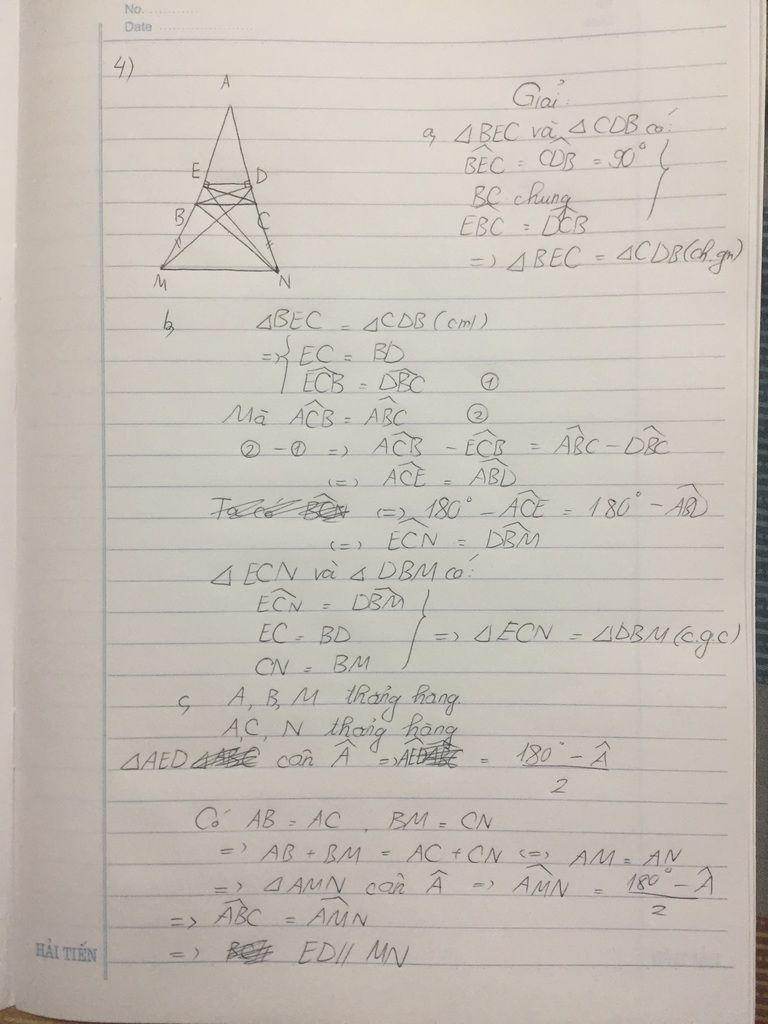 No.
Date
4)
A
E
D
B
C
M
N
Giải:
a, △BEC và △CDB có:
BEC^ = CDB^ = 90°
BC chung
EBC^ = DCB^
=> △BEC = △CDB (ch.gn)
b, △BEC = △CDB (cmt)
=> { EC = BD
ECB^ = DBC^ ①
Mà ACB^ = ABC^ ②
② - ① => ACB^ - ECB^ = ABC^ - DBC^
<=> ACE^ = ABD^
<=> 180° - ACE^ = 180° - ABD^
<=> ECN^ = DBM^
△ ECN và △ DBM có:
ECN^ = DBM^
EC = BD
CN = BM
=> △ECN = △DBM (c.g.c)
c, A, B, M thẳng hàng.
A,C, N thẳng hàng
△AED cân Â => AED^ = 180° - Â / 2
Có AB = AC, BM = CN
=> AB + BM = AC + CN <=> AM = AN
=> △AMN cân Â => AMN^ = 180° - Â / 2
=> ABC^ = AMN^
=> ED // MN
HẢI TIẾN